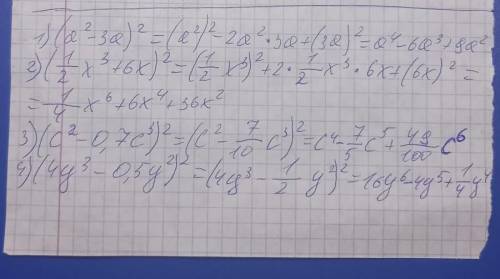 1) (a² - 3a)² = (a²)² = 2a² · 3a + (3a)² = a⁴ - 6a³ + 9a²
2) (1/2 x³ + 6x)² = (1/2 x³)² + 2 · 1/2 x³ · 6x + (6x)² =
= 1/4 x⁶ + 6x⁴ + 36x²
3) (c² - 0,7c³)² = (c² - 7/10 c³)² = c⁴ - 7/5 c⁵ + 49/100 c⁶
4) (4y³ - 0,5y²)² = (4y³ - 1/2 y²)² = 16y⁶ - 4y⁵ + 1/4 y⁴